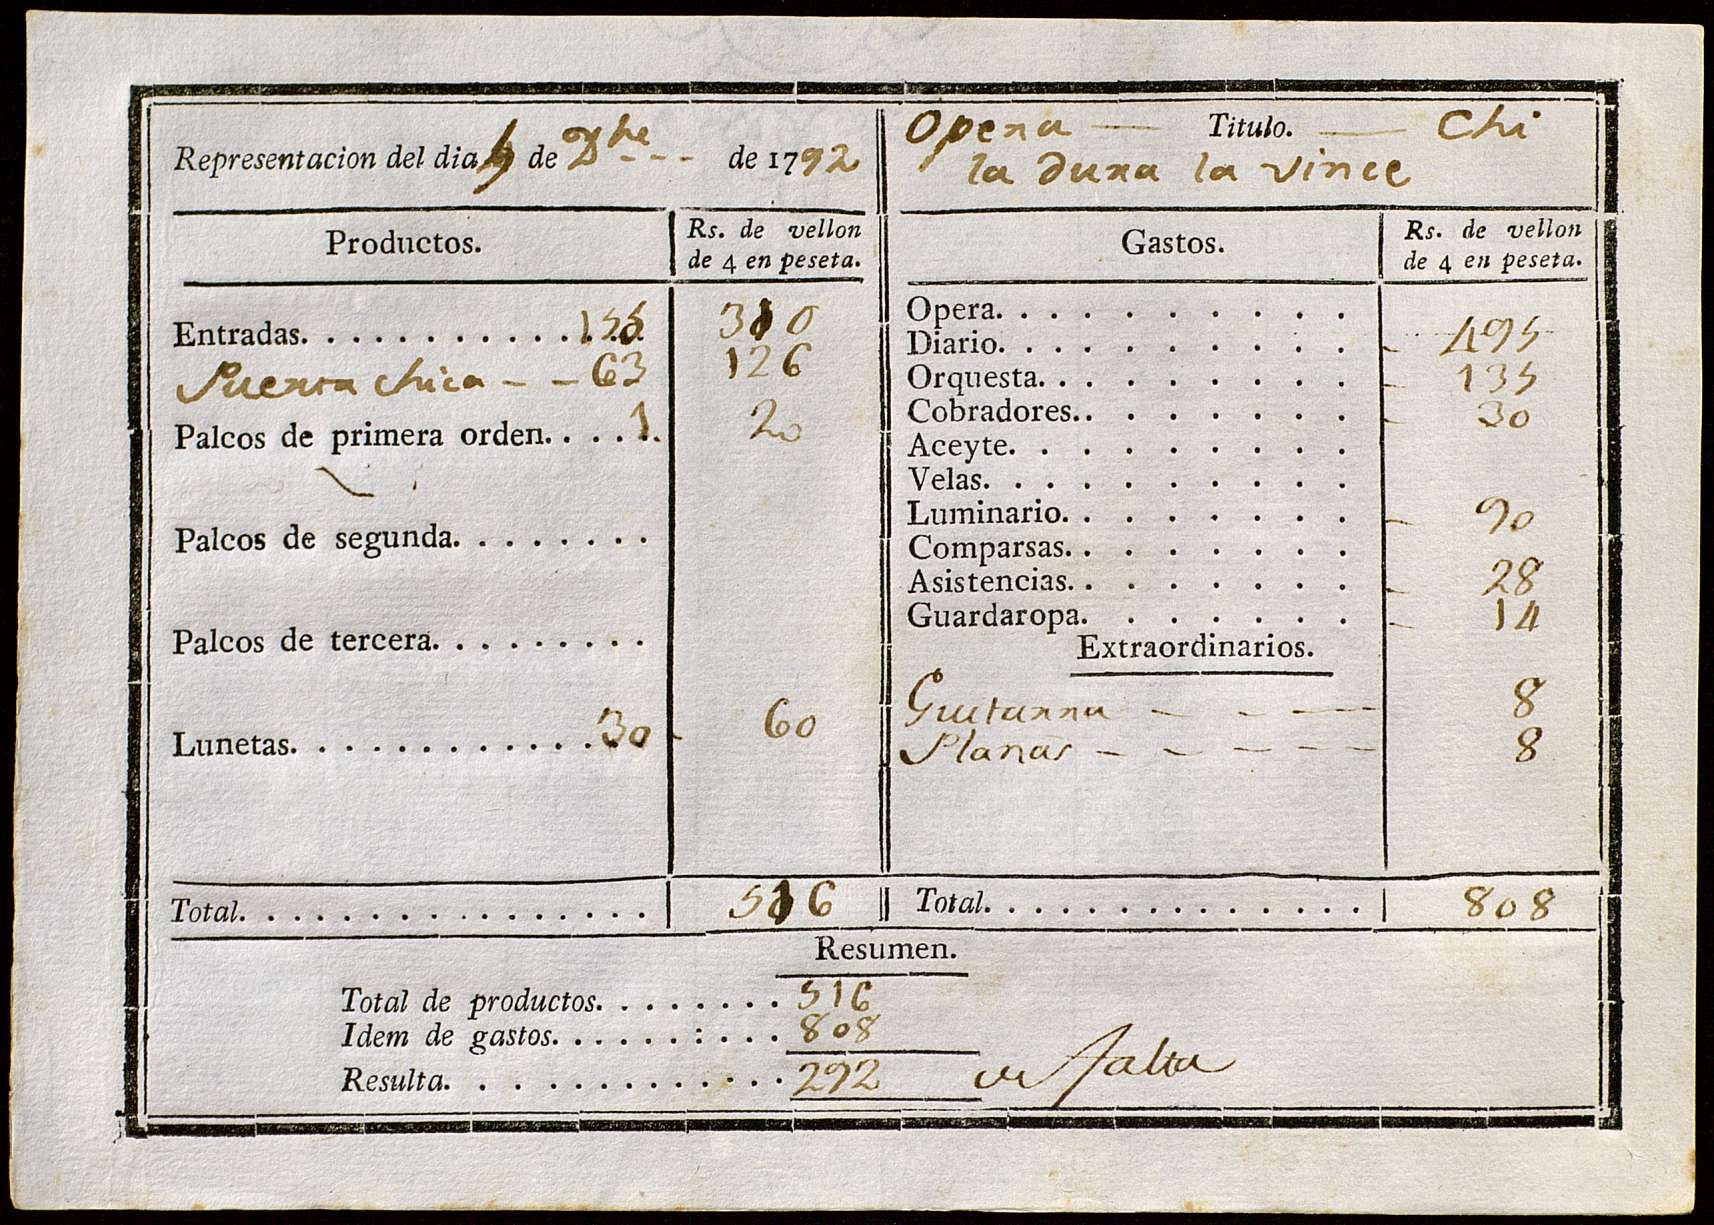 Representacion del dia de Xbre de 1792
Opera Titulo. Chi
la dura la vince
Productos. Rs. de vellon
de 4 en peseta.
Gastos. Rs. de vellon
de 4 en peseta.
Entradas. 155 310
Puerta chica 63 126
Palcos de primera orden. 1 20
Palcos de segunda.
Palcos de tercera.
Lunetas. 30 60
Total. 516
Opera.
Diario. 495
Orquesta. 135
Cobradores. 30
Aceyte.
Velas.
Luminario. 90
Comparsas.
Asistencias. 28
Guardaropa. 14
Extraordinarios.
Guitarra 8
Planas 8
Total. 808
Resumen.
Total de productos. 516
Idem de gastos. 808
Resulta. 292 de falta